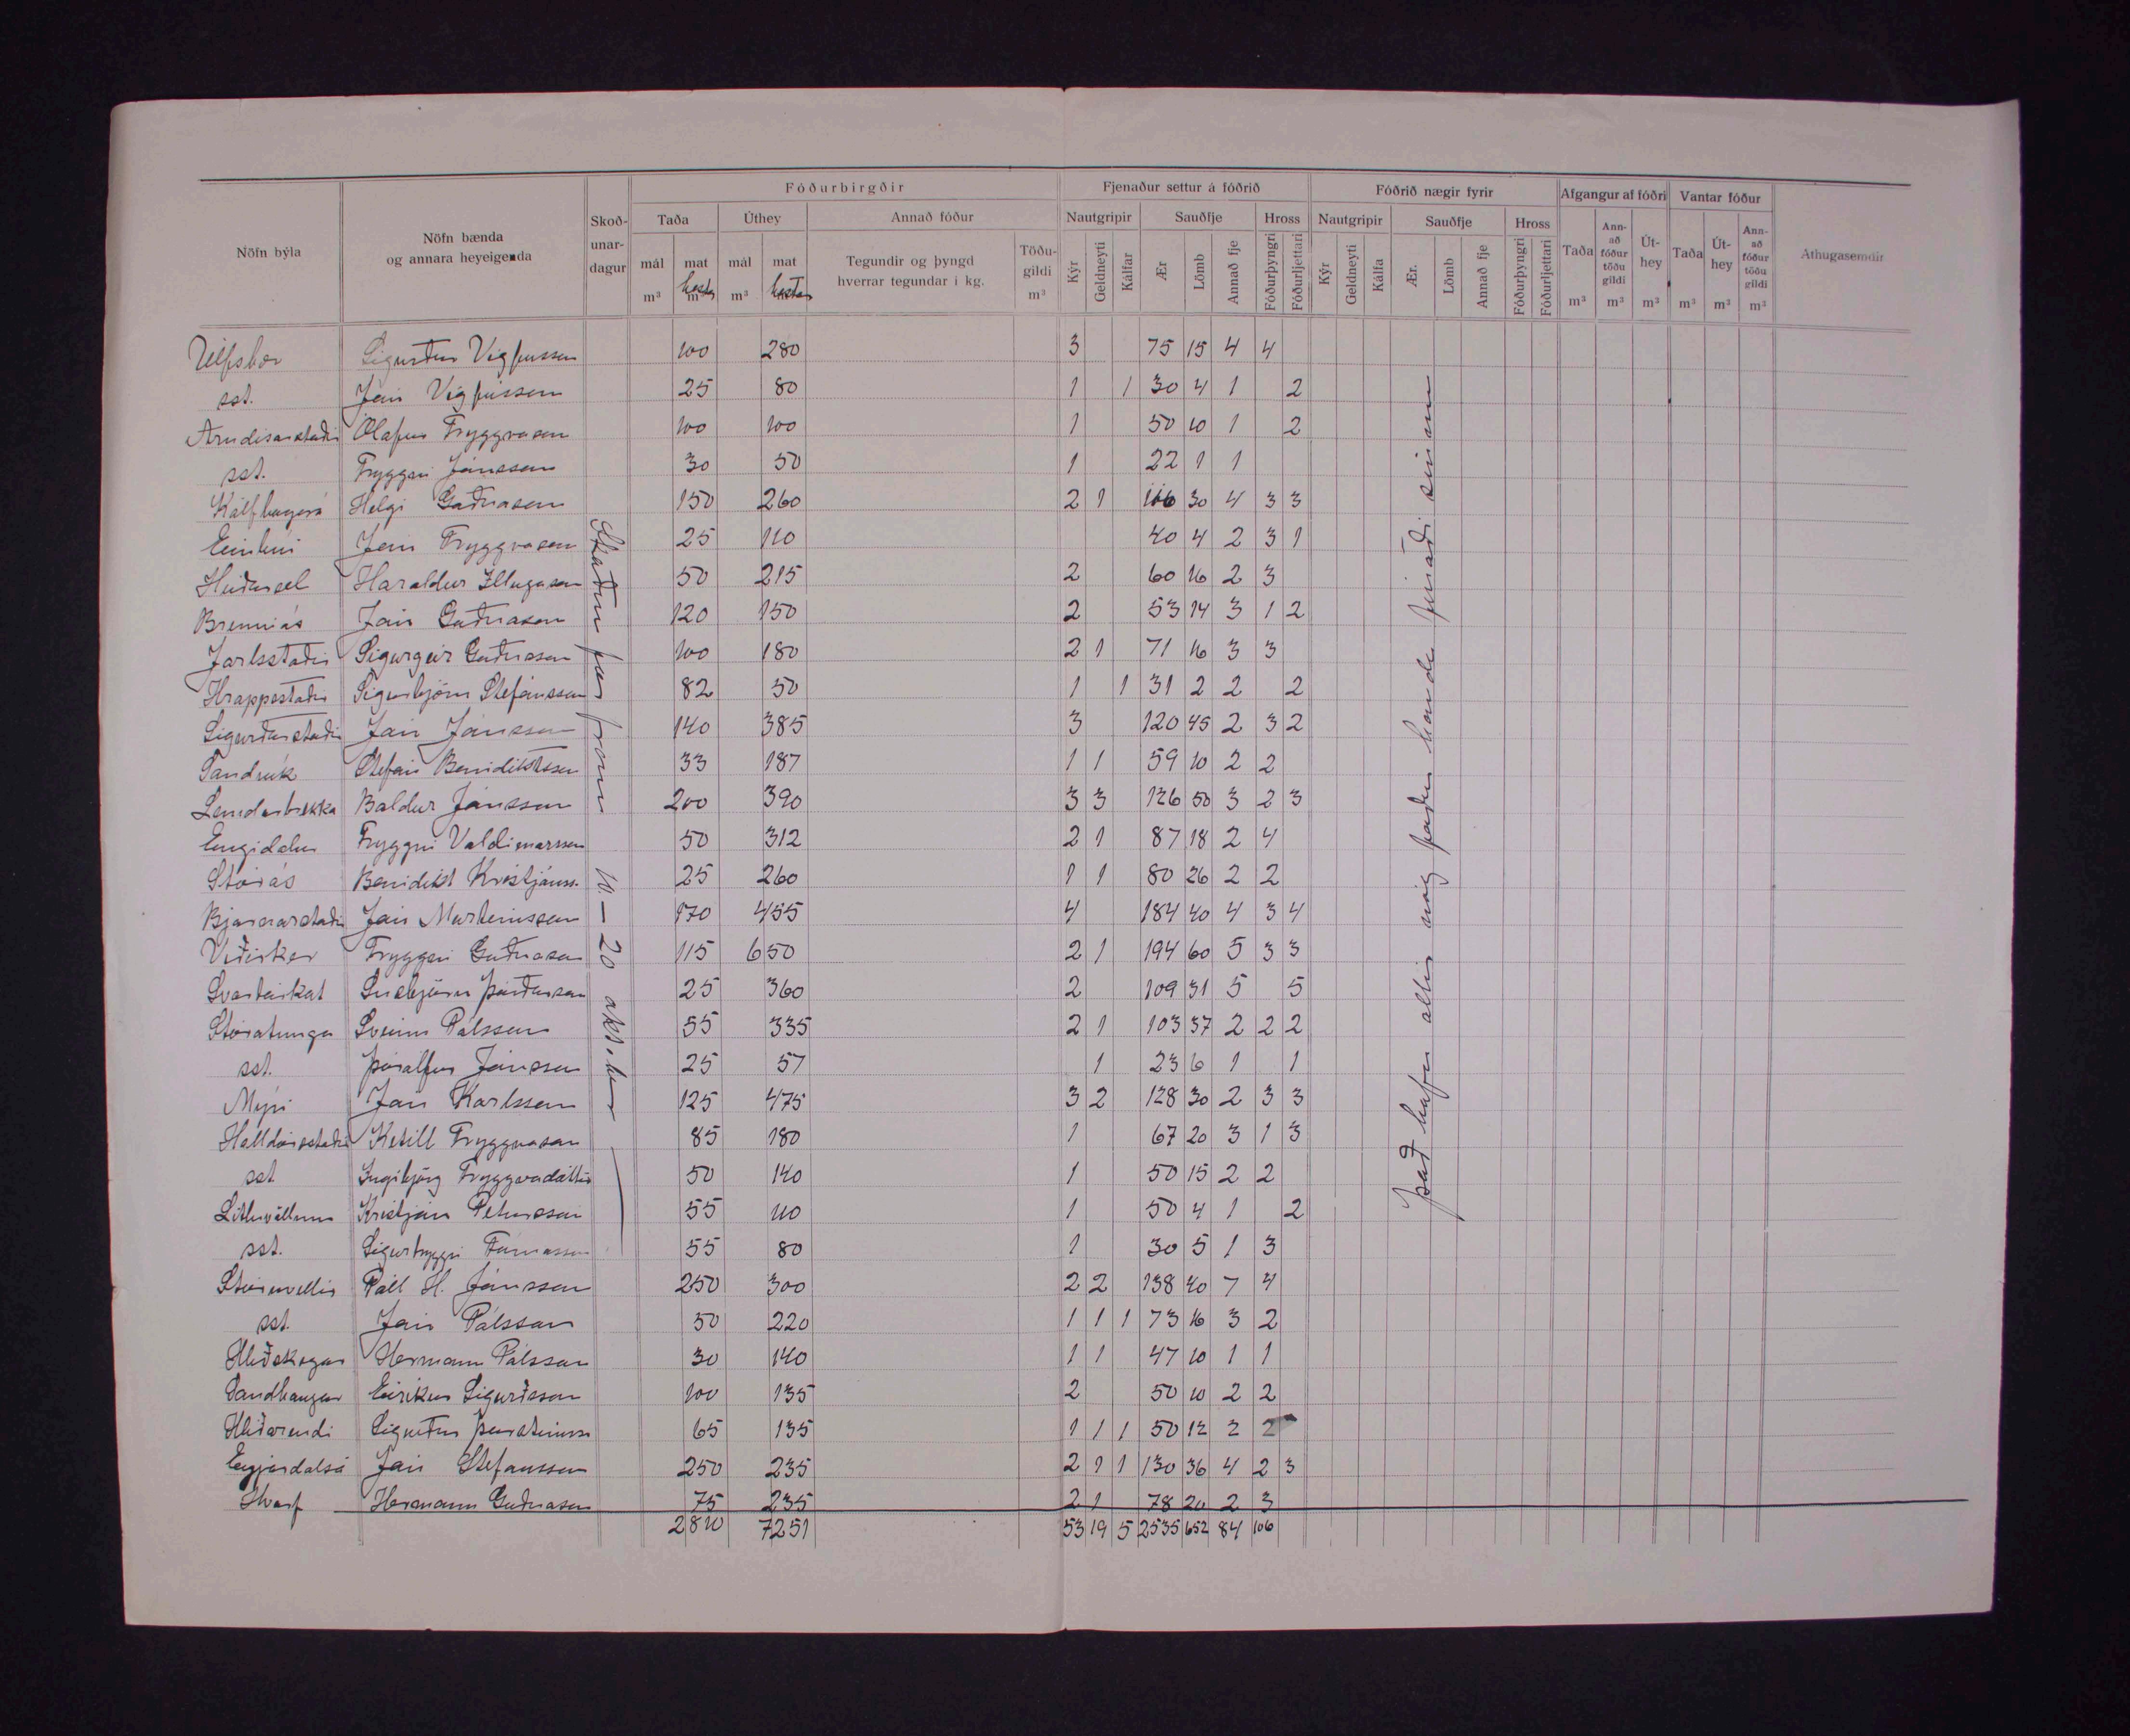 Fóðurbirgðir Fjenaður settur á fóðrið Fóðrið nægir fyrir Afgangur af fóðri Vantar fóður
Nöfn býla Nöfn bænda og annara heyeigenda Skoðunardagur Taða Úthey Annað fóður Nautgripir Sauðfje Hross Nautgripir Sauðfje Hross Taða Annað fóður töðu gildi Úthey Taða Úthey Annað fóður töðu gildi Athugasemdir
mál m³ mat m³ hestar mál m³ mat hestar Tegundir og þyngd hverrar tegundar í kg. Töðugildi m³ Kýr Geldneyti Kálfar Ær Lömb Annað fje Fóðurþyngri Fóðurljettari Kýr Geldneyti Kálfa Ær. Lömb Annað fje Fóðurþyngri Fóðurljettari m³ m³ m³ m³ m³ m³
Úlfsbær Sigurður Vigfússon 100 280 3 75 15 4 4
sst. Jón Vigfússon 25 80 1 1 30 4 1 2
Arndísarstaðir Ólafur Tryggvason 100 100 1 50 10 1 2
sst. Tryggvi Jónsson 30 50 1 22 1 1
Kálfborgará Helgi Guðnason 150 260 2 1 30 4 3 3
Einbúi Jón Tryggvason 25 110 40 4 2 3 1
Heiðarsel Haraldur Illugason 50 215 2 60 16 2 3
Brennás Jón Guðnason 120 150 2 53 14 3 1 2
Jarlsstaðir Sigurgeir Guðnason 100 180 2 1 71 16 3 3
Hrappsstaðir Sigurbjörn Stefánsson 82 50 1 1 31 2 2 2
Sigurðarstaðir Jón Jónsson 140 385 3 120 45 2 3 2
Sandvík Stefán Benidiktsson 33 187 1 1 59 10 2 2
Lundarbrekka Baldur Jónsson 200 390 3 3 126 50 3 2 3
Engidalur Tryggvi Valdimarsson 50 312 2 1 87 18 2 4
Stórás Benidikt Kristjánss. 25 260 1 1 80 26 2 2
Bjarnarstaðir Jón Marteinsson 170 455 4 184 40 4 3 4
Víðirker Tryggvi Guðnason 115 650 2 1 194 60 5 3 3
Svartárkot Snæbjörn Þórðarson 25 360 2 109 31 5 5
Stóratunga Sveinn Pálsson 55 335 2 1 103 37 2 2 2
sst. Þórólfur Jónsson 25 57 1 23 6 1 1
Mýri Jón Karlsson 125 475 3 2 128 30 2 3 3
Halldórsstaðir Ketill Tryggvason 85 180 1 67 20 3 1 3
sst Ingibjörg Tryggvadóttir 50 140 1 50 15 2 2
Litluvöllum Kristján Pétursson 55 110 1 50 4 1 2
sst. Sigurtryggvi Tómasson 55 80 1 30 5 1 3
Stóruvellir Páll H. Jónsson 250 300 2 2 138 40 7 4
sst. Jón Pálsson 50 220 1 1 1 73 16 3 2
Hlíðskógar Hermann Pálsson 30 140 1 1 47 10 1 1
Sandhaugar Eiríkur Sigurðsson 100 135 2 50 10 2 2
Hlíðarendi Sigurður Þorsteinsson 65 135 1 1 1 50 12 2 2
Eyjardalsá Jón Stefansson 250 235 2 1 1 130 36 4 2 3
Hvarf Hermann Guðnason 75 235 2 1 78 20 2 3
2810 7251 53 19 5 2535 652 84 106
Skoðun fór fram 10.–20 október
Það hafa allir nóg fóður handa fénaði sínum